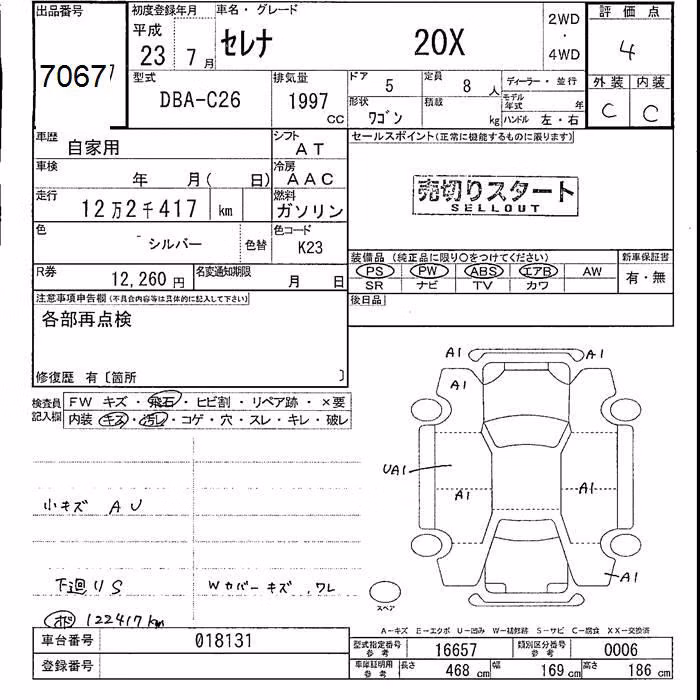 出品番号 初度登録年月 車名・グレード 2WD ・ 4WD 評価点
70677 平成 23 7月 セレナ 20X 4
型式 DBA-C26 排気量 1997 CC ドア 5 定員 8人 ディーラー・並行 外装 内装
形状 ワゴン 積載 kg モデル年式 年 C C
ハンドル 左・右
車歴 自家用 シフト AT セールスポイント(正常に機能するものに限ります)
車検 年 月( 日) 冷房 AAC
売切りスタート
SELLOUT
走行 12万2千417 km 燃料 ガソリン
色 シルバー 色替 色コード K23
装備品(純正品に限り○をつけてください) 新車保証書
PS PW ABS エアB AW 有・無
SR ナビ TV カワ
R券 12,260円 名変通知期限 月 日
注意事項申告欄(不具合内容等は具体的に記入して下さい) 後日品
各部再点検
修復歴 有〔箇所 〕
検査員記入欄 FW キズ・飛石・ヒビ割・リペア跡・×要
内装・キズ・汚レ・コゲ・穴・スレ・キレ・破レ
A1 A1
A1
UA1
A1 A1
A1
小キズ AU
下廻りS Wカバーキズ、ワレ
スペア
ボ 122417km
A-キズ E-エクボ U-凹み W-補修跡 S-サビ C-腐食 XX-交換済
車台番号 018131
型式指定番号 参考 16657 類別区分番号 参考 0006
登録番号
車庫証明用 参考 長さ 468 cm 幅 169 cm 高さ 186 cm